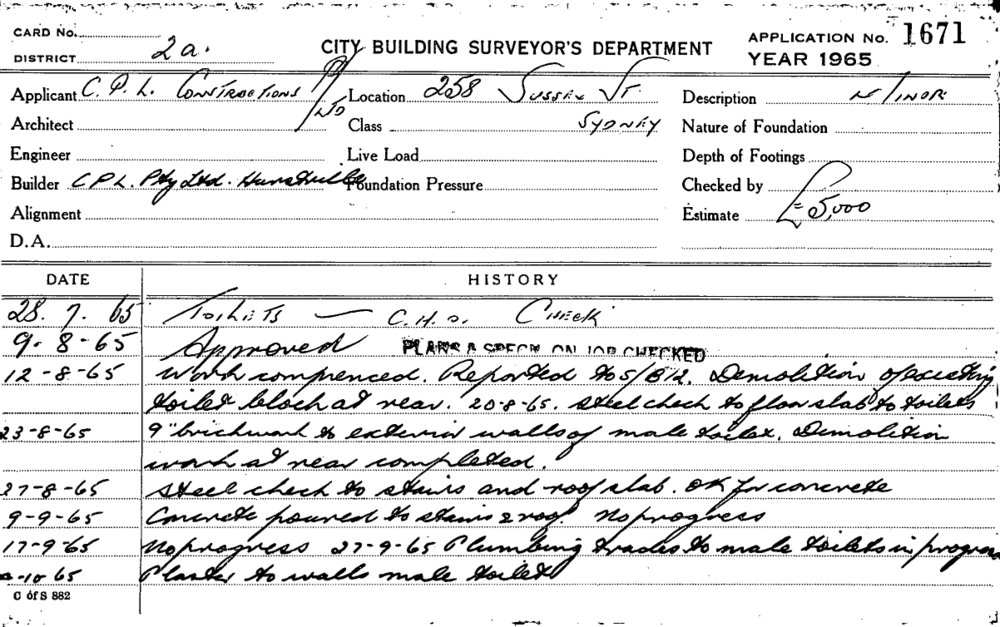 CARD No.
DISTRICT 2a.
CITY BUILDING SURVEYOR'S DEPARTMENT
APPLICATION No. 1671
YEAR 1965
Applicant C. P. L. CONSTRUCTIONS P/ LTD
Location 258 SUSSEX ST.
Description MINOR
Architect
Class SYDNEY
Nature of Foundation
Engineer
Live Load
Depth of Footings
Builder C P L. Pty Ltd. Hurstville
Foundation Pressure
Checked by
Alignment
Estimate £5,000
D.A.
DATE HISTORY
28. 7. 65 TOILETS — C.H.O. CHECK
9-8-65 Approved PLANS & SPECN. ON JOB CHECKED
12-8-65 Work commenced. Reported to S/B/2. Demolition of existing
toilet block at rear. 20-8-65. Steel check to floor slab to toilets
23-8-65 9" brickwork to exterior walls of male toilet. Demolition
work at rear completed.
27-8-65 Steel check to stairs and roof slab. OK for concrete
9-9-65 Concrete poured to stairs & roof. No progress
17-9-65 No progress 27-9-65 Plumbing trades to male toilets in progress
-10-65 Plaster to walls male toilet
C of S 882